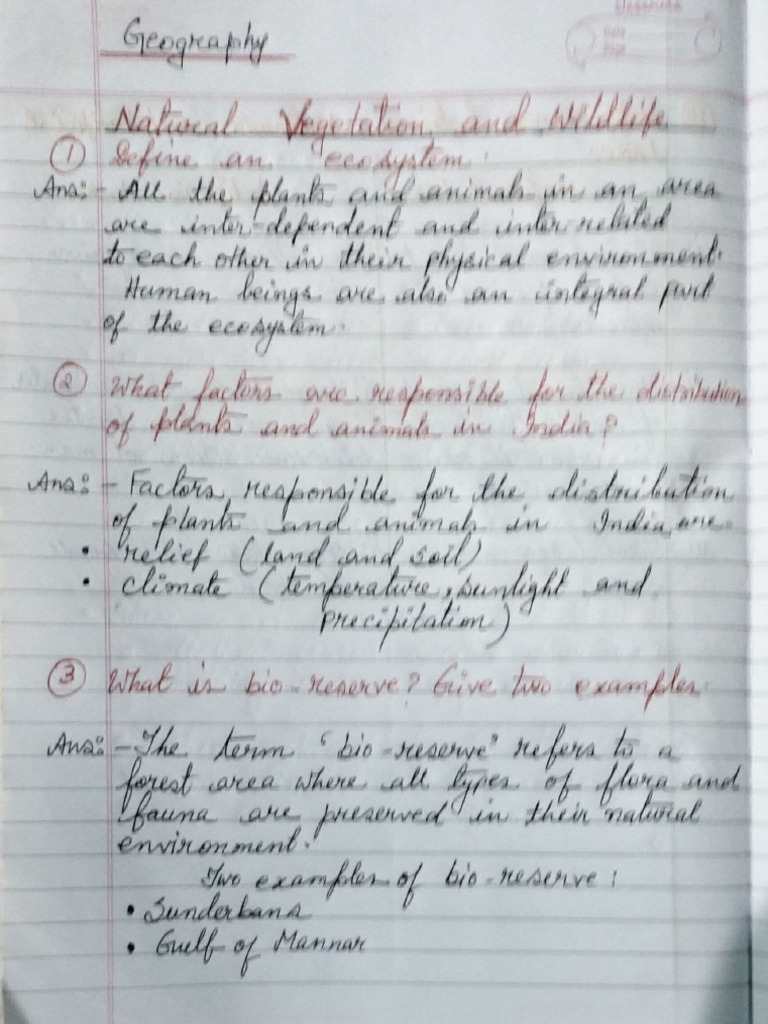 Geography
Natural Vegetation and Wildlife
① Define an ecosystem.
Ans:- All the plants and animals in an area
are inter-dependent and inter-related
to each other in their physical environment.
Human beings are also an integral part
of the ecosystem.
② What factors are responsible for the distribution
of plants and animals in India?
Ans:- Factors responsible for the distribution
of plants and animals in India are-
• relief (land and soil)
• climate (temperature, sunlight and
precipitation)
③ What is bio-reserve? Give two examples.
Ans:- The term "bio-reserve" refers to a
forest area where all types of flora and
fauna are preserved in their natural
environment.
Two examples of bio-reserve:
• Sunderbans
• Gulf of Mannar